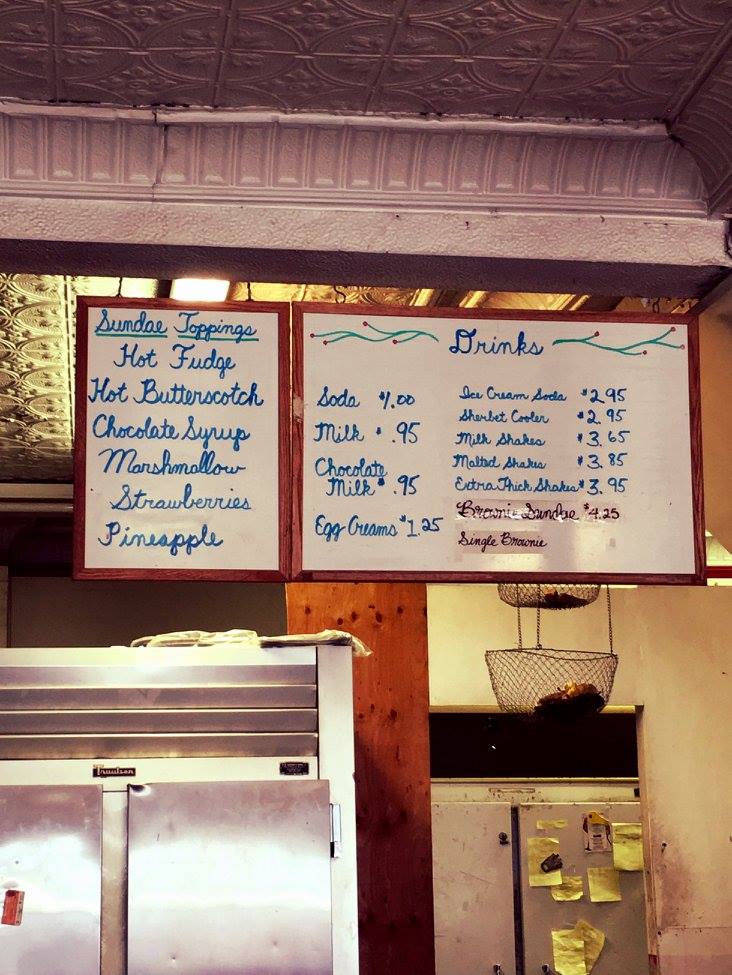 Sundae Toppings
Hot Fudge
Hot Butterscotch
Chocolate Syrup
Marshmallow
Strawberries
Pineapple
Drinks
Soda $1.00
Milk $ .95
Chocolate
Milk $ .95
Egg Creams $1.25
Ice Cream Soda $2.95
Sherbet Cooler $2.95
Milk Shakes $3.65
Malted Shakes $3.85
Extra Thick Shakes $3.95
Brownie Sundae $4.25
Single Brownie
Traulsen